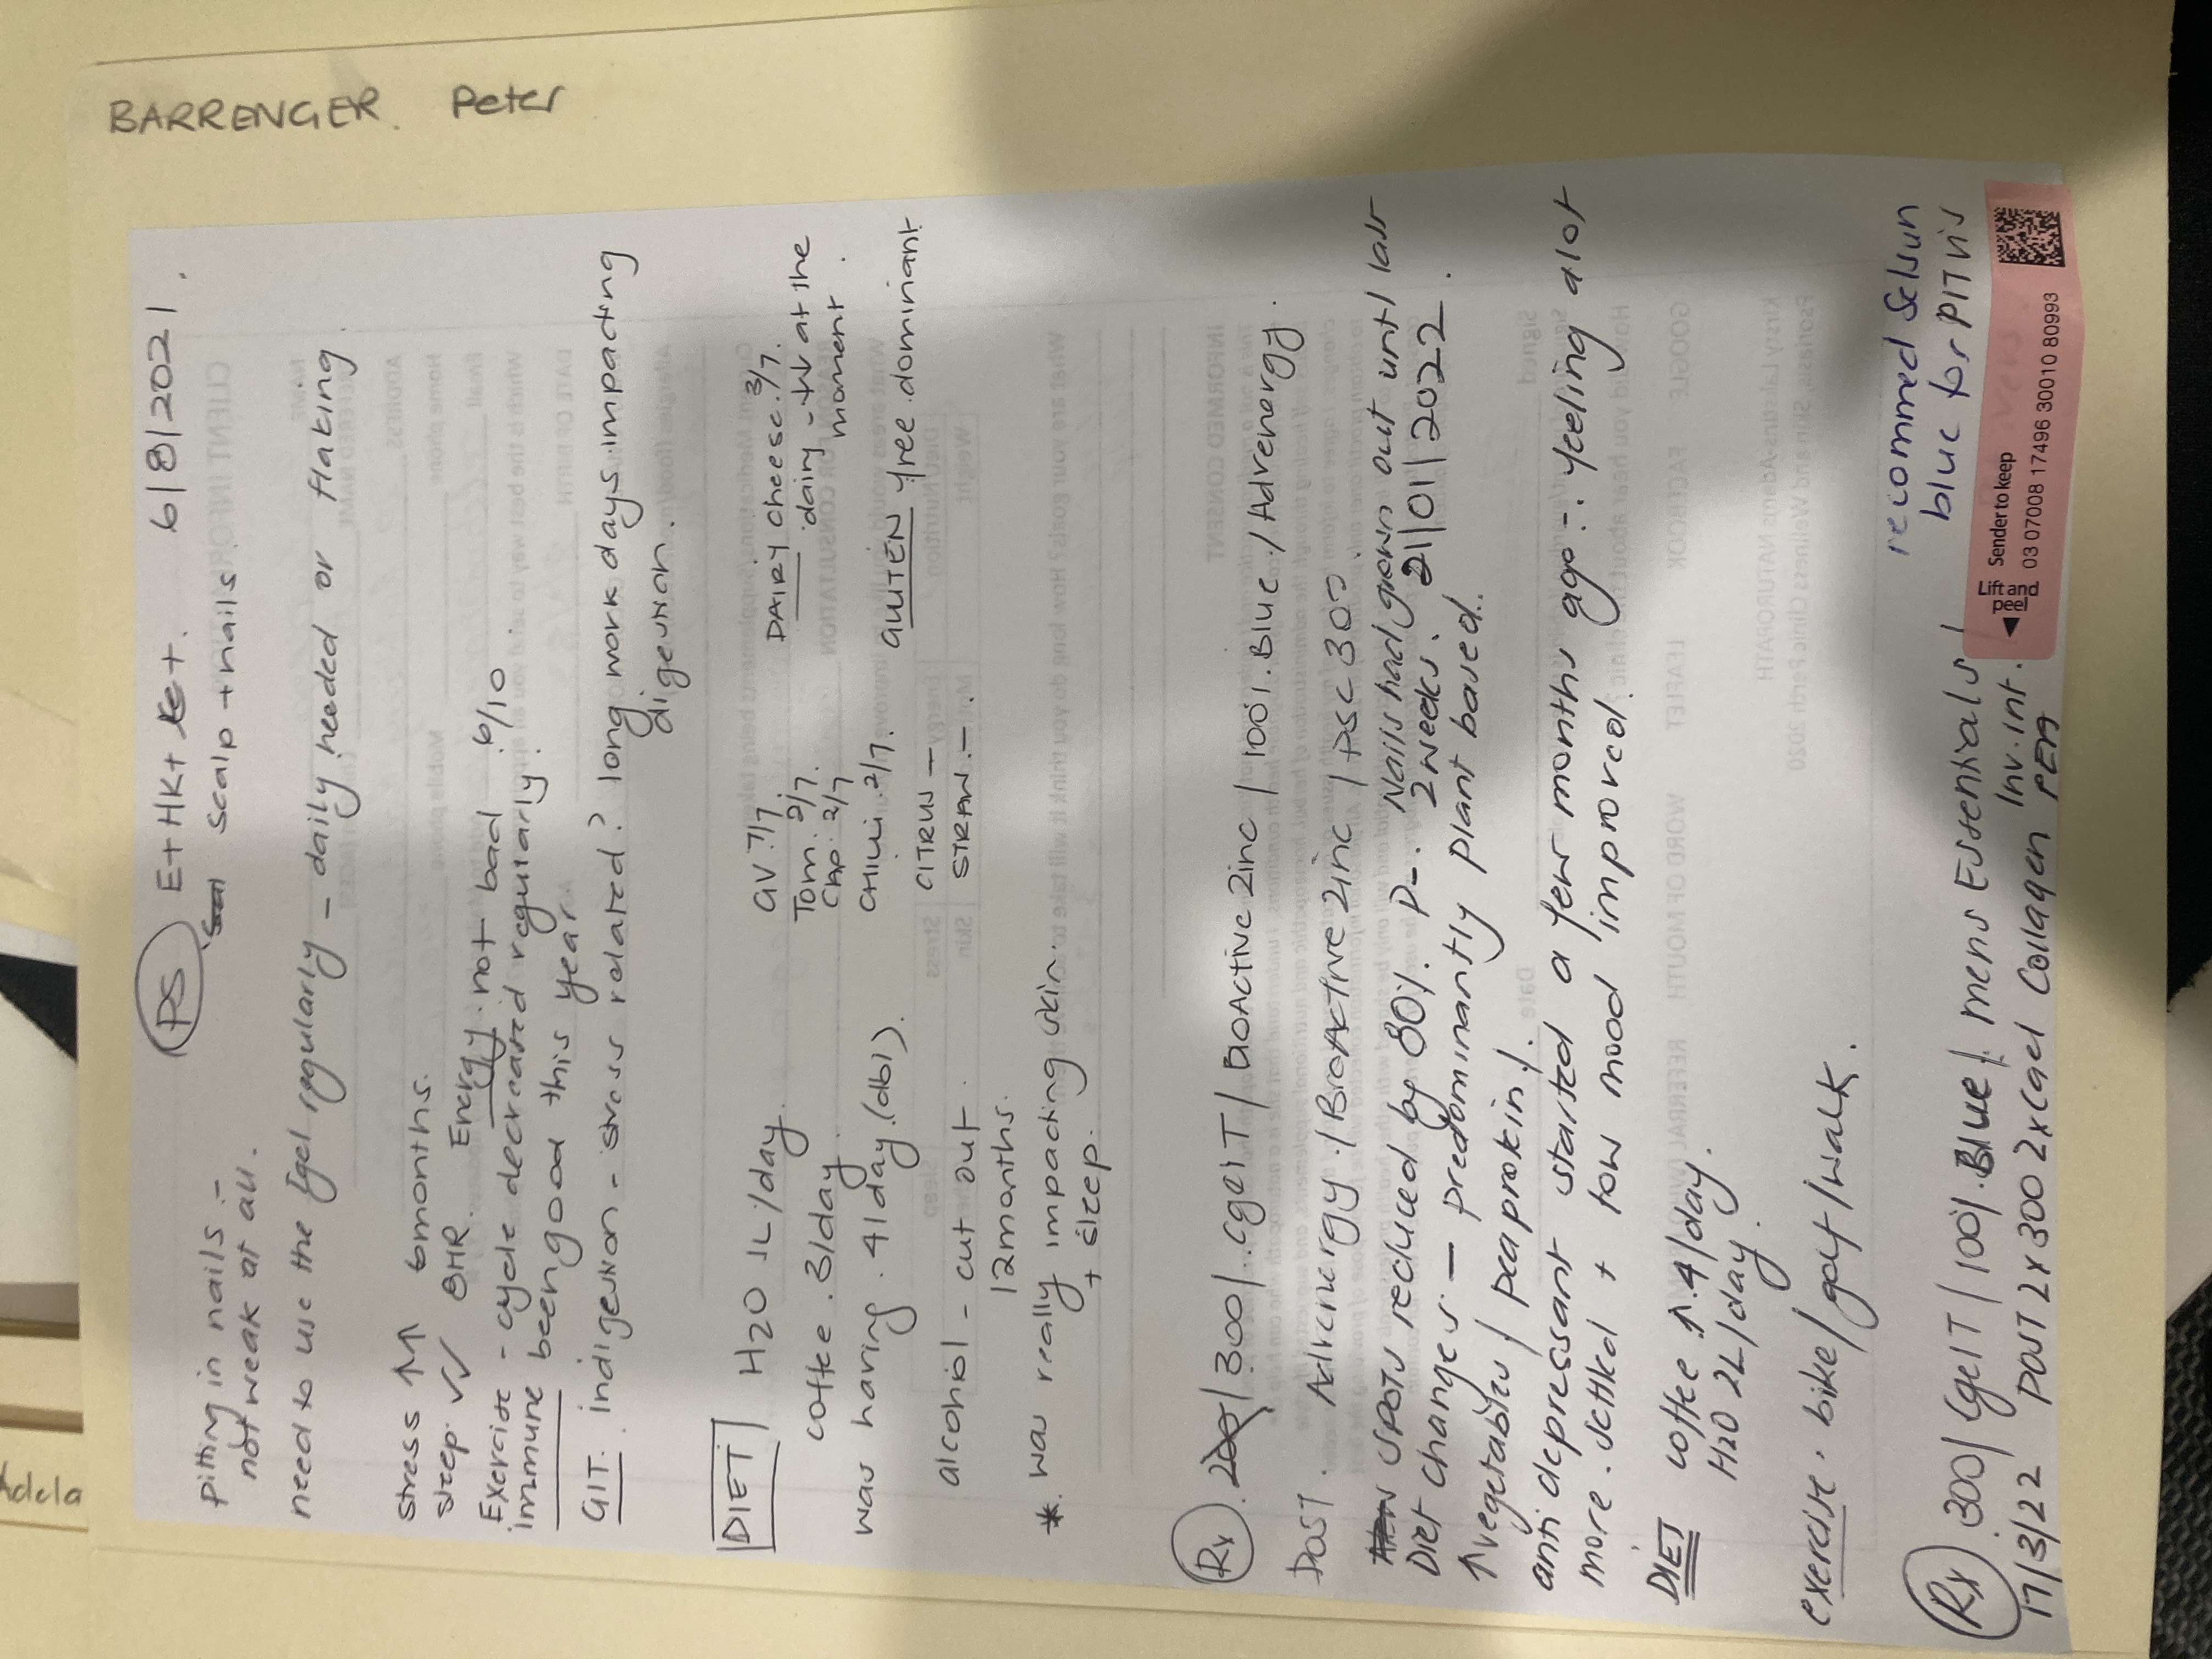 BARRENGER. Peter
(PS) E+ HK+ Ke+. 6/8/2021.
pitting in nails - scalp + nails
not weak at all.
need to use the Egel regularly - daily needed or flaking.
stress ↑↑ 6months.
sleep. ✓✓ 8HR. Energy. not bad. 6/10
Exercise - cycle decreased regularly.
immune been good this year
GIT. indigestion - stress related? long work days. impacting
digestion.
DIET
H2O 1L/day.
coffee. 3/day
was having. 4/day. (dbl).
alcohol - cut out.
12months.
*. was really impacting skin.
+ sleep.
GV. 7/7
Tom. 2/7.
Cap. 2/7
CHILLI. 2/7.
CITRUS -
STRAW. -.
DAIRY cheese. 3/7.
dairy - at the
moment.
GLUTEN free. dominant
(Rx). 300/. Cgel T/ BioActive Zinc / 100%. Blue. / Advenergy.
POST. Advenergy. / BioActive Zinc / PSC 300
SPOTS reduced by 80%. P-. Nails had grown out until last
2 weeks. 21/01/2022.
Diet changes - predominantly plant based.
↑vegetables / pea protein /.
anti depressant started a few months ago -: feeling alot
more. settled + low mood improved.
DIET coffee ↑. 4/day.
H2O 2L/day.
exercise. bike/golf/walk.
recommed Selsun
blue for PITVIS
(Rx). 300/ Cgel T/ 100%. Blue/ mens Essentials /
Inv. int.
17/3/22 POST 2x300 2xCgel Collagen PEA
Lift and
peel
Sender to keep
03 07008 17496 30010 80993
Adela
CLIENT INFOR
INFORMED CONSENT
GOOGLE FACEBOOK LEAFLET WORD OF MOUTH REFERRAL
Psoriasis, Skin and Wellness Clinic Perth 2020